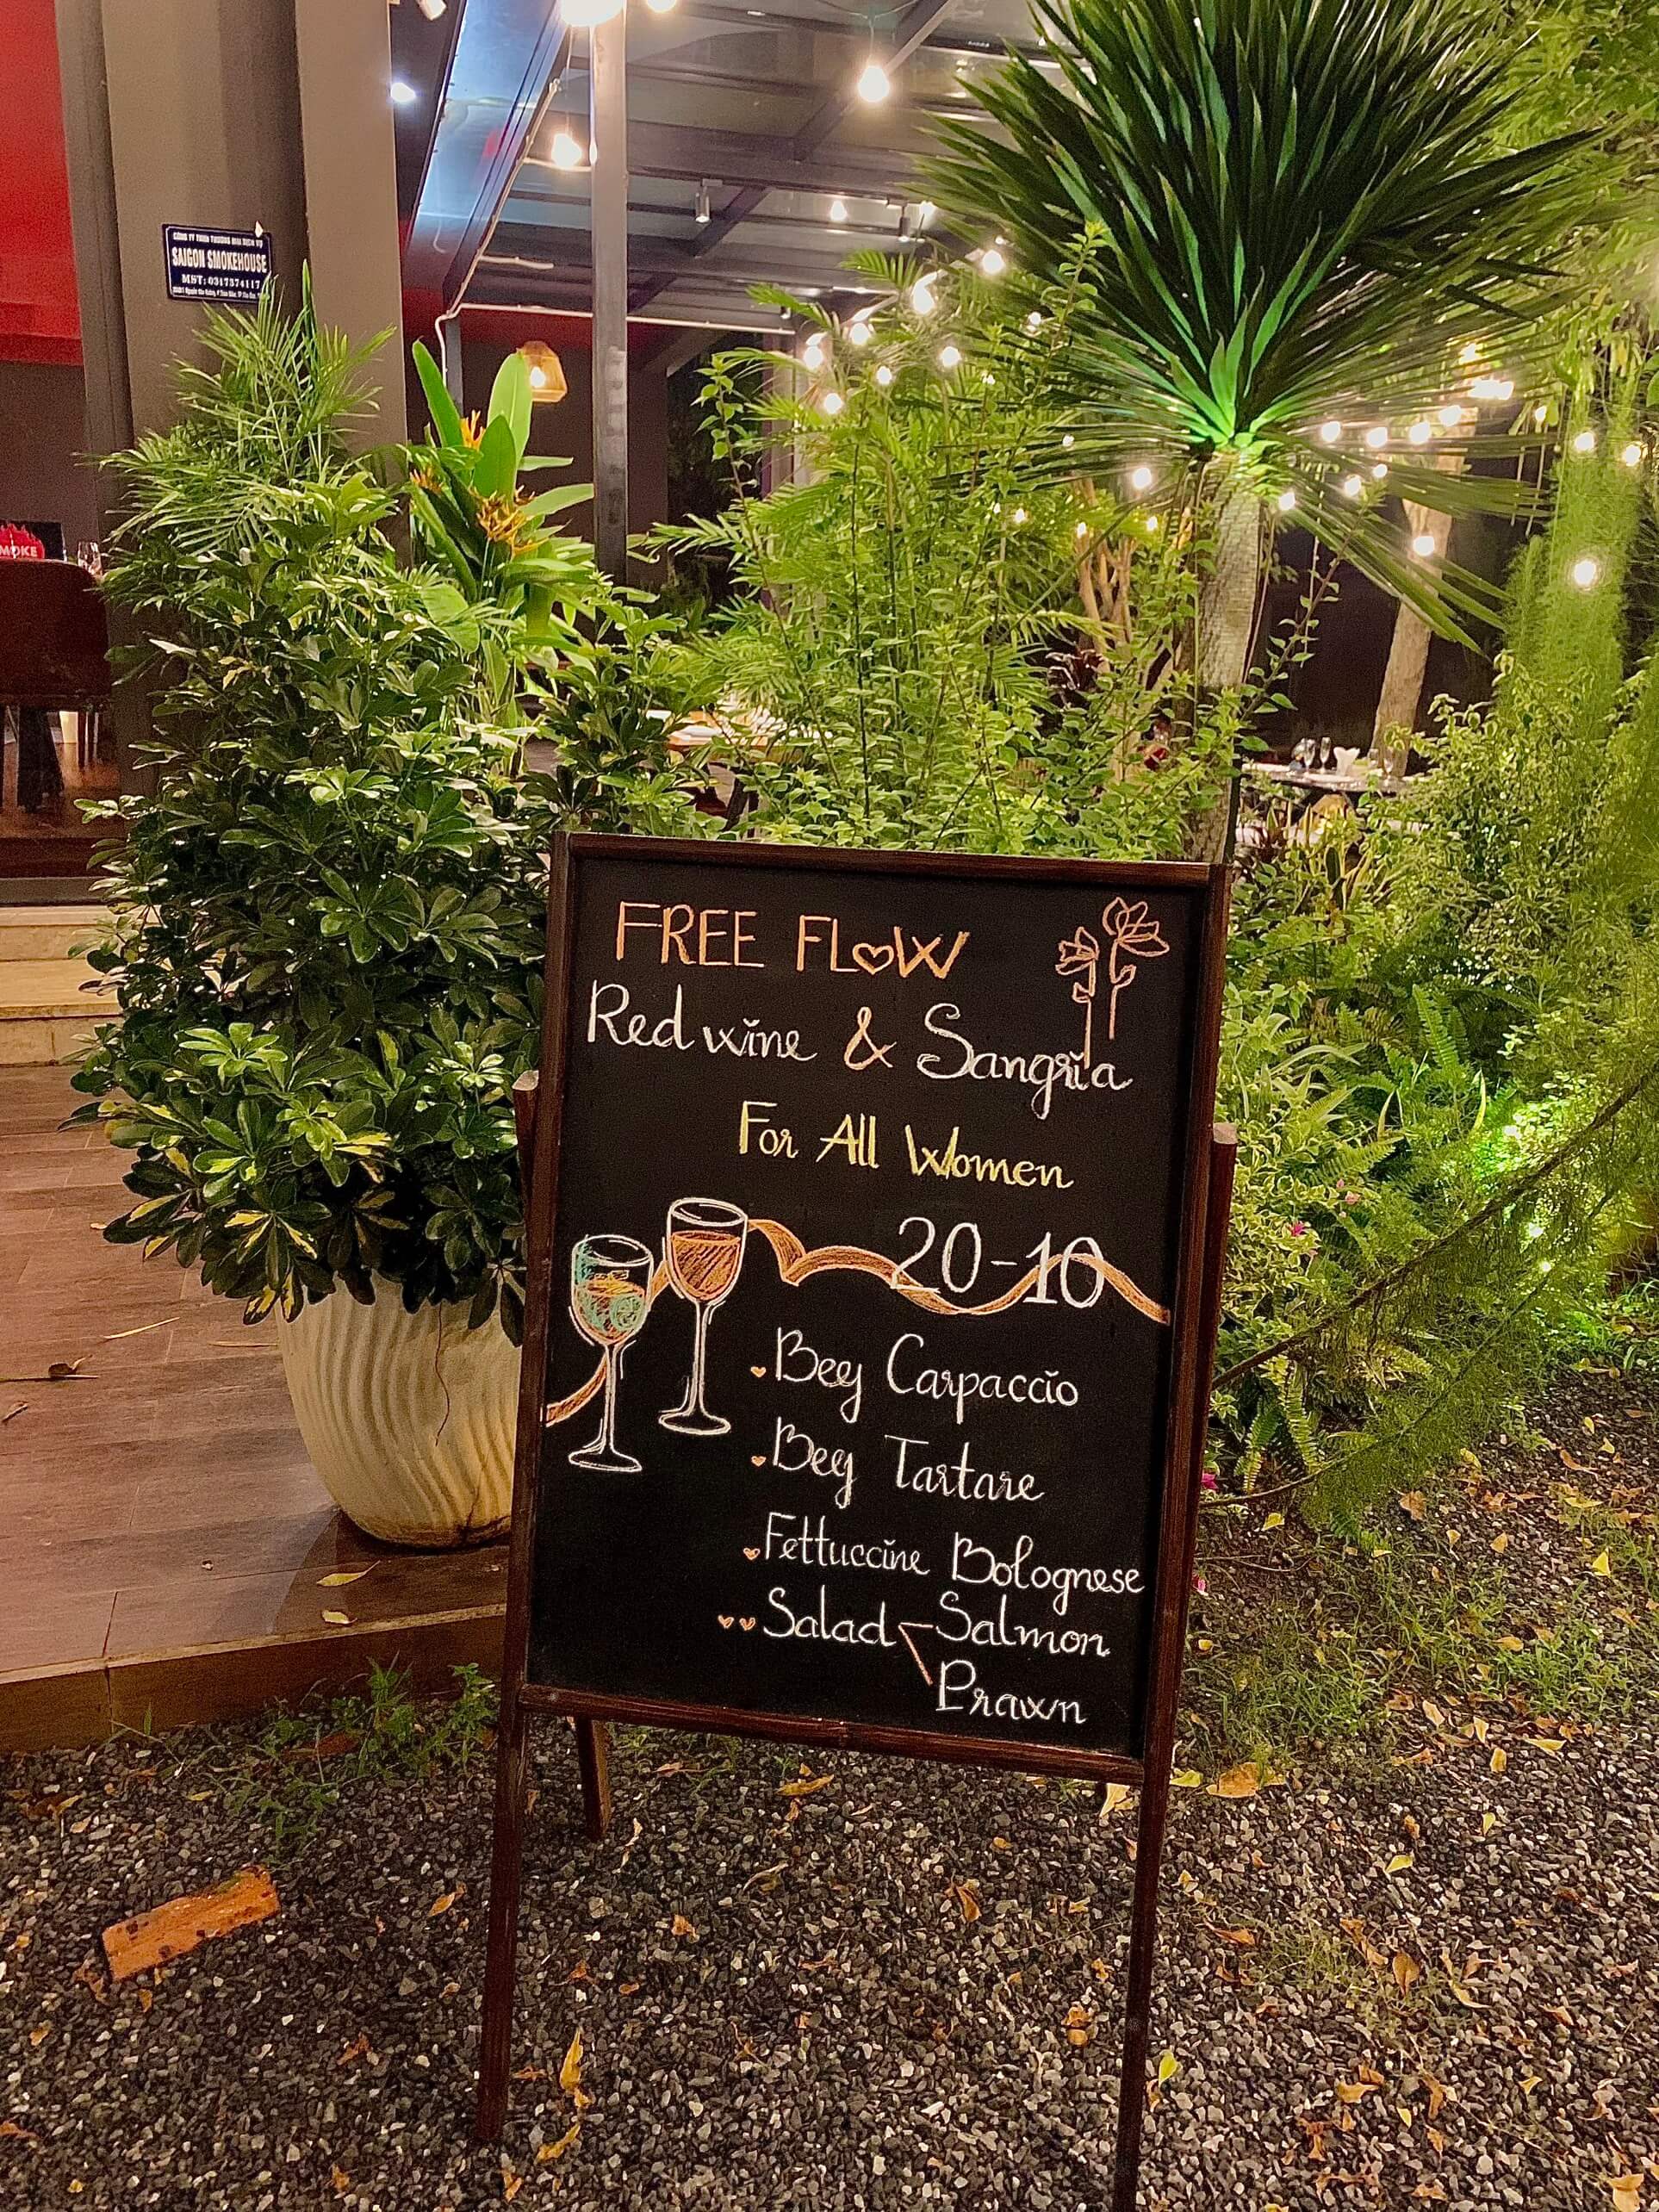 CÔNG TY TNHH THƯƠNG MẠI DỊCH VỤ
SAIGON SMOKEHOUSE
MST: 0317374117
MOKE
FREE FLOW
Red wine & Sangria
For All Women
20-10
Beef Carpaccio
Beef Tartare
Fettuccine Bolognese
Salad Salmon
Prawn